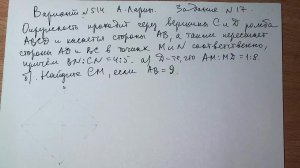 Вариант №514 А. Ларин. Задание №17.
Окружность проходит через вершины C и D ромба
ABCD и касается стороны AB, а также пересекает
стороны AD и BC в точках M и N соответственно,
причём BN:CN=4:5. а) D-ть, что AM:MD=1:8
б). Найдите CM, если AB=9.